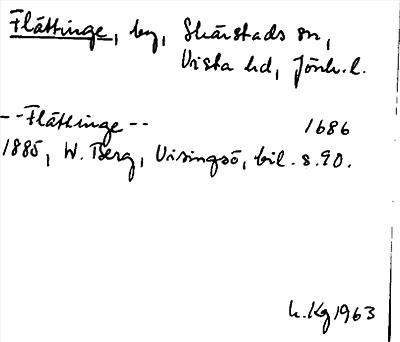 Flättinge, by, Skärstads sn,
Vista hd, Jönk. l.
--Flättinge-- 1686
1885, W. Berg, Visingsö, bil. s. 90.
h. Kg 1963